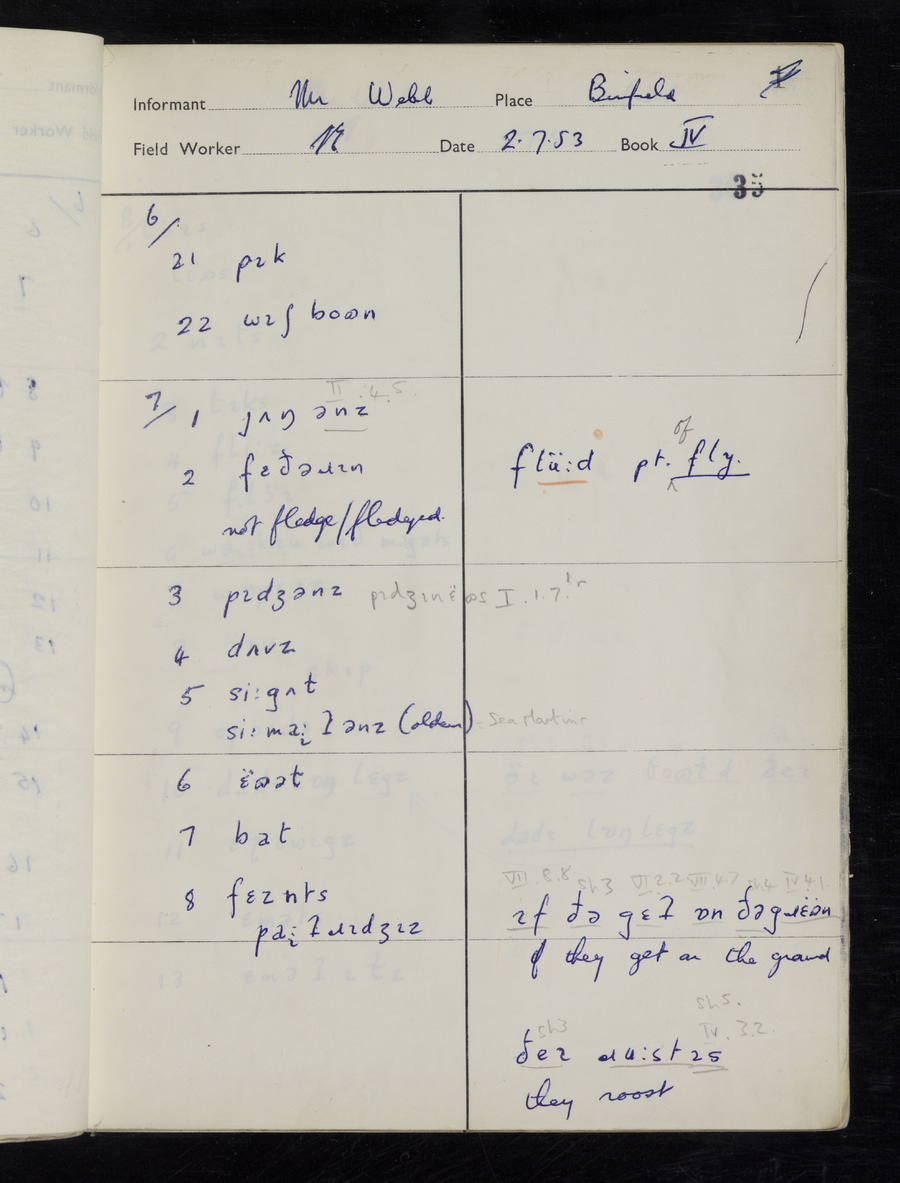 Informant Mr Webb Place Binfield
Field Worker Date 2.7.53 Book IV
35
6/
21 pɪk
22 wɪʃ boʊn
7/ 1 jʌŋ ənz II :4.5.
2 fɛðəɹɪn
not fledge/fledged.
flü:d pt. of fly.
3 pɪdʒənz pɪdʒɪnɛ̈ʊs I .1.7.
4 dʌvz
5 si:gʌɫ
si: ma:ɪɫənz (older)
6 ɛ̈ʊət
7 bat
8 fɛznts
pa:ɪɫɹɪdʒɪz
VII .8.8 sh3 VI 2.2 VII 4.7 sh4 IV 4.1.
ɪf ðə gɛʔ ɒn ðəgɹɛ̈ʊn
if they get on the ground
sh3 sh5. IV .3.2.
ðeɪ ɹu:stɪs
they roost